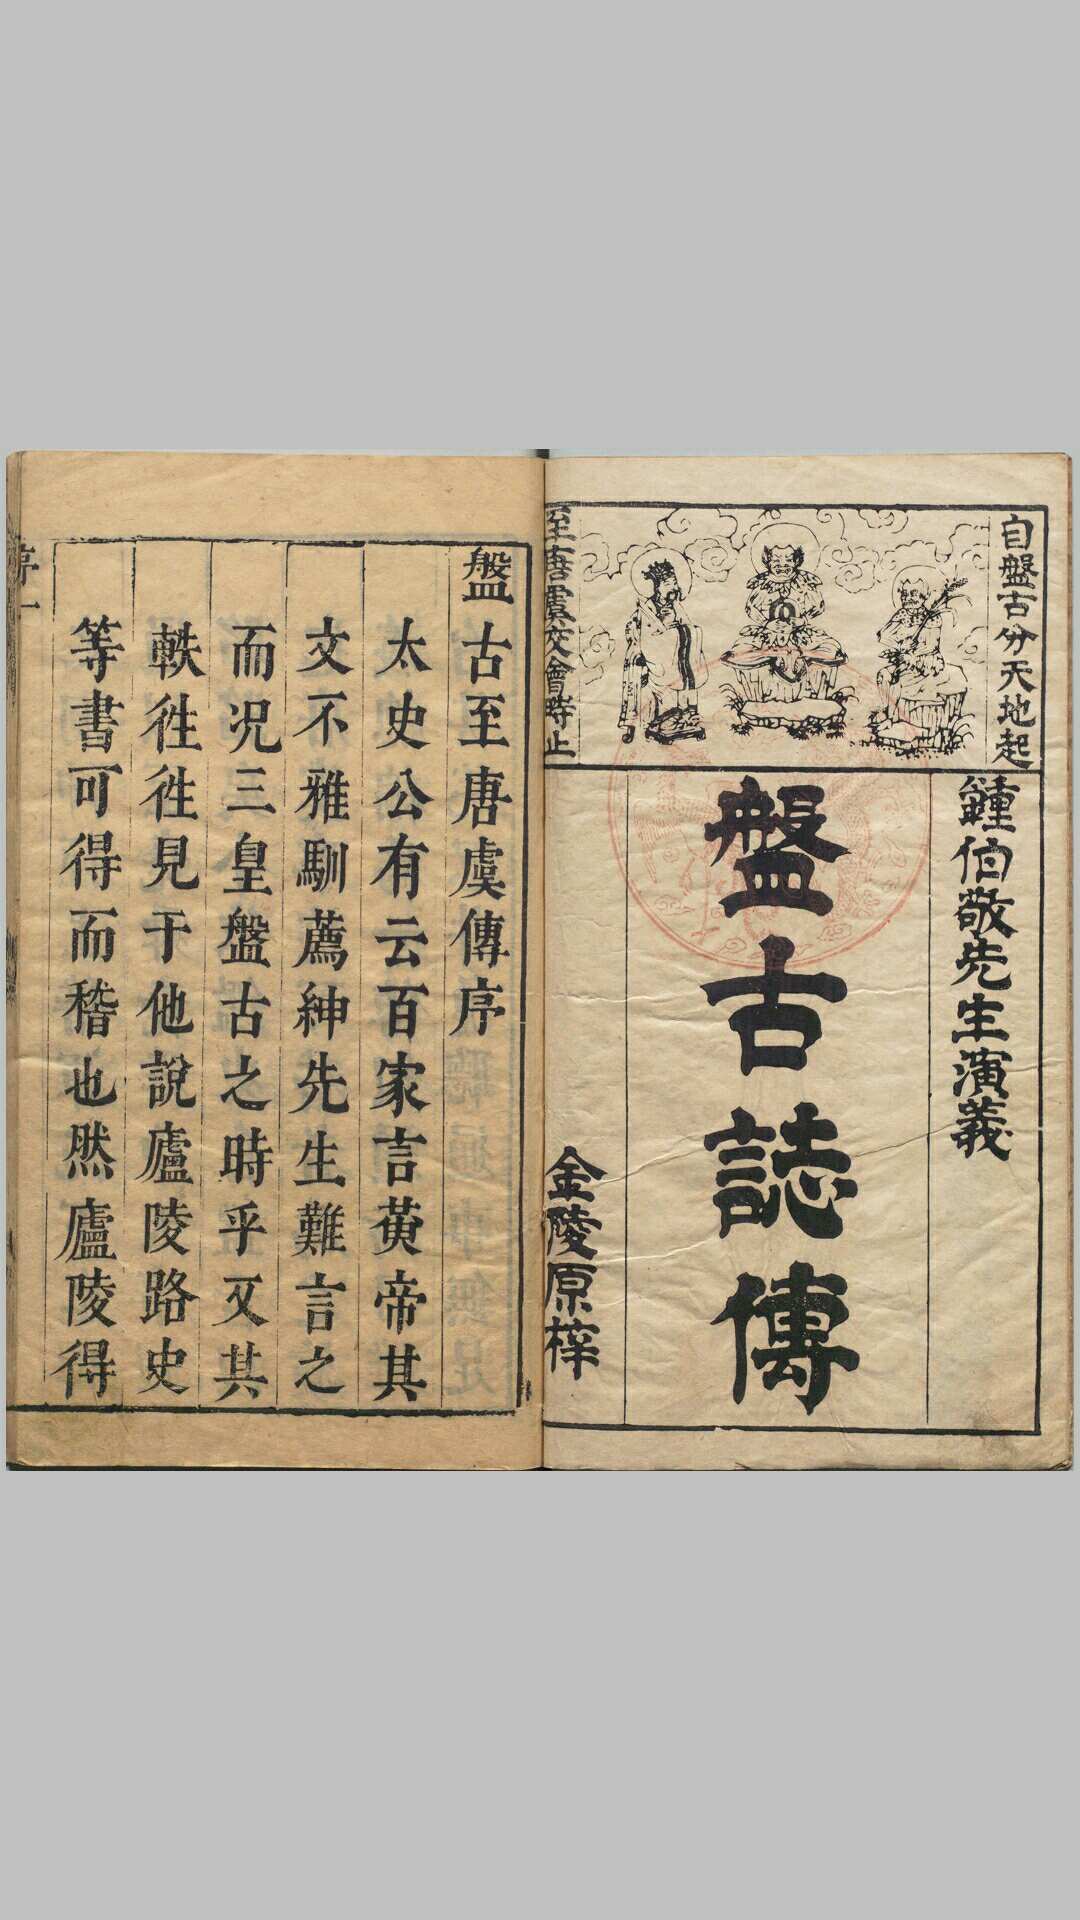 自盤古分天地起
至唐虞交會時止
鍾伯敬先生演義
盤古誌傳
金陵原梓
盤古至唐虞傳序
太史公有云百家言黄帝其
文不雅馴薦紳先生難言之
而况三皇盤古之時乎又其
軼徃徃見于他說廬陵路史
等書可得而稽也然廬陵得
序一